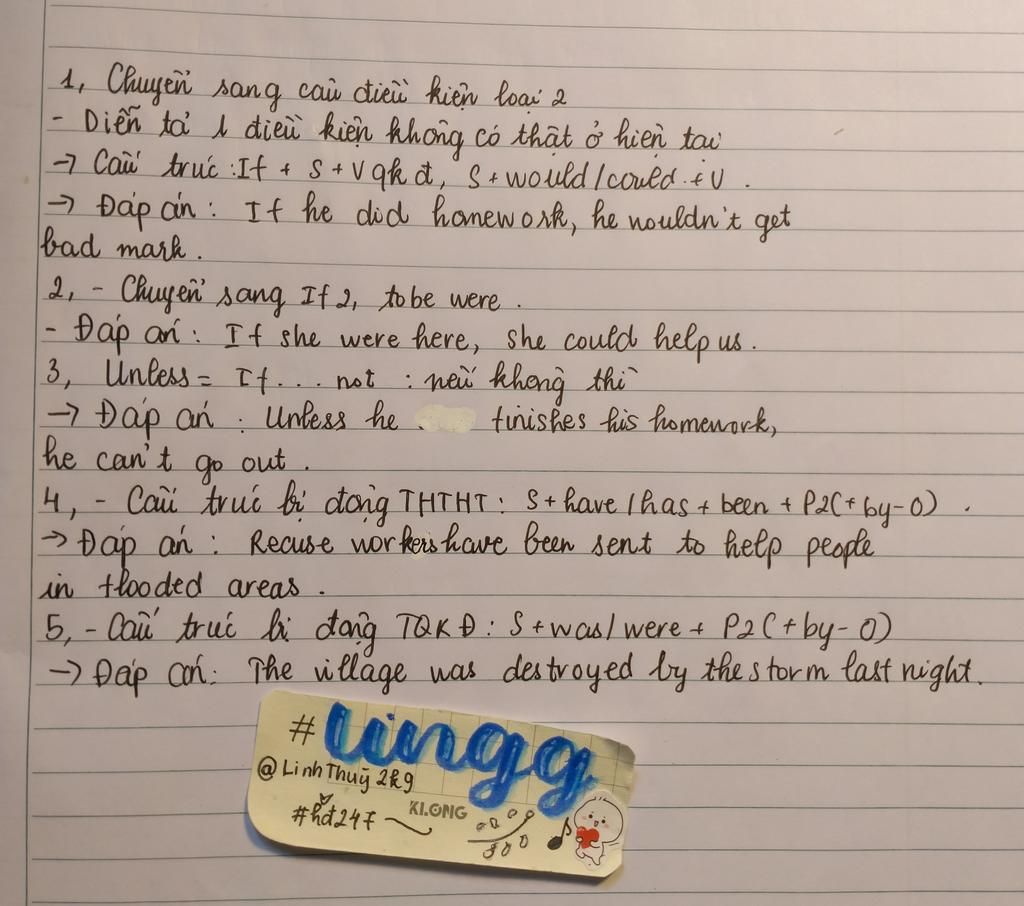 1, Chuyển sang câu điều kiện loại 2
- Diễn tả 1 điều kiện không có thật ở hiện tại
→ Cấu trúc : If + S + V qkđ, S + would / could + V .
→ Đáp án : If he did homework, he wouldn't get
bad mark .
2, - Chuyển sang If 2, tobe were .
- Đáp án : If she were here, she could help us .
3, Unless = If ... not : nếu không thì
→ Đáp án : Unless he finishes his homework,
he can't go out .
4, - Cấu trúc bị động THTHT : S + have / has + been + P2 (+ by - O) .
→ Đáp án : Recuse workers have been sent to help people
in flooded areas .
5, - Cấu trúc bị động TQKĐ : S + was / were + P2 (+ by - O)
→ Đáp án : The village was destroyed by the storm last night.
#lingg
@LinhThuỳ2k9
#hđ247
KLONG